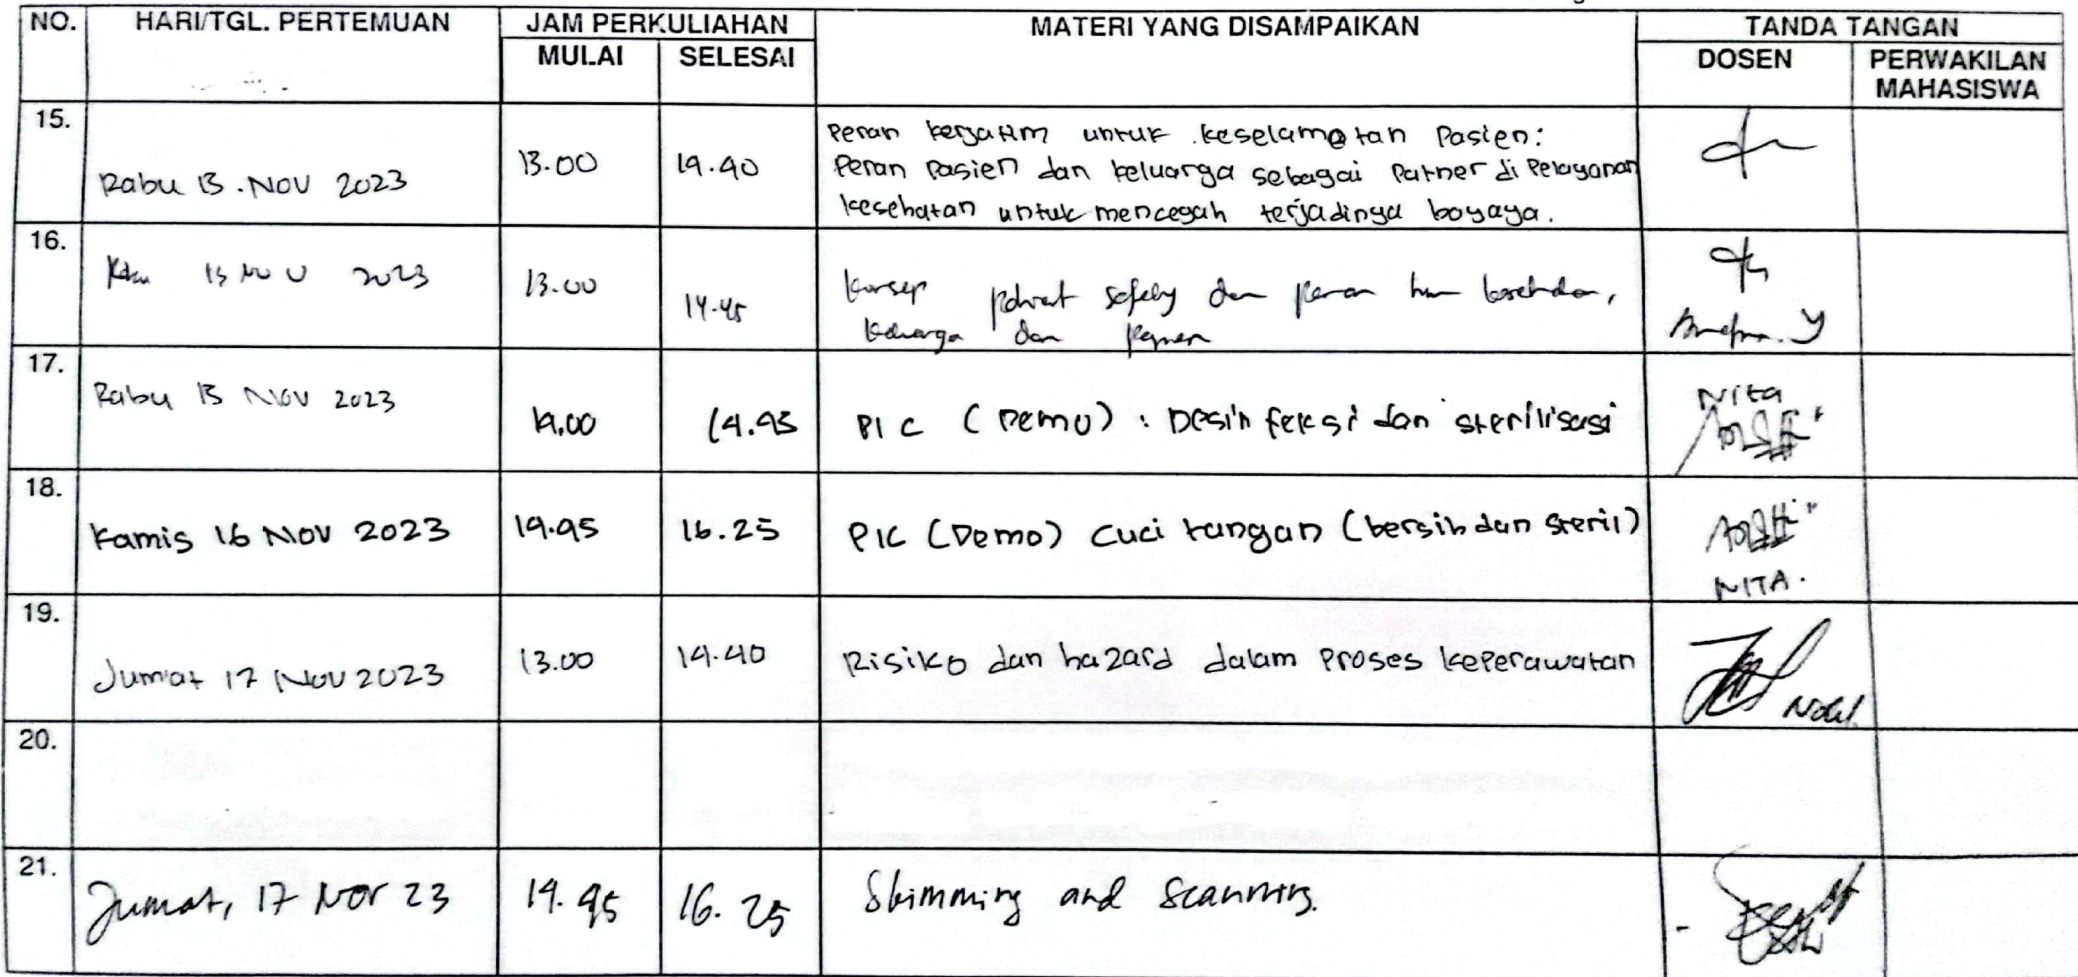 NO. HARI/TGL. PERTEMUAN JAM PERKULIAHAN MATERI YANG DISAMPAIKAN TANDA TANGAN
MULAI SELESAI DOSEN PERWAKILAN
MAHASISWA
15.
Rabu 15 . NOV 2023 13.00 14.40
Peran kerjatim untuk keselamatan Pasien:
Peran Pasien dan keluarga sebagai Patner di Pelayanan
kesehatan untuk mencegah terjadinya bayaya.
16.
15 NOV 2023 13.00 14.45
Konsep patient safety dan peran
keluarga dan
17.
Rabu 15 Nov 2023 14.00 14.45 PIC (Demo) : Desinfeksi dan sterilisasi Nita
18.
Kamis 16 Nov 2023 14.45 16.25 PIC (Demo) Cuci tangan (bersih dan steril)
NITA.
19.
Jumat 17 Nov 2023 13.00 14.40 Risiko dan hazard dalam Proses keperawatan
20.
21.
Jumat, 17 Nov 23 14.45 16.25 Skimming and Scanning.